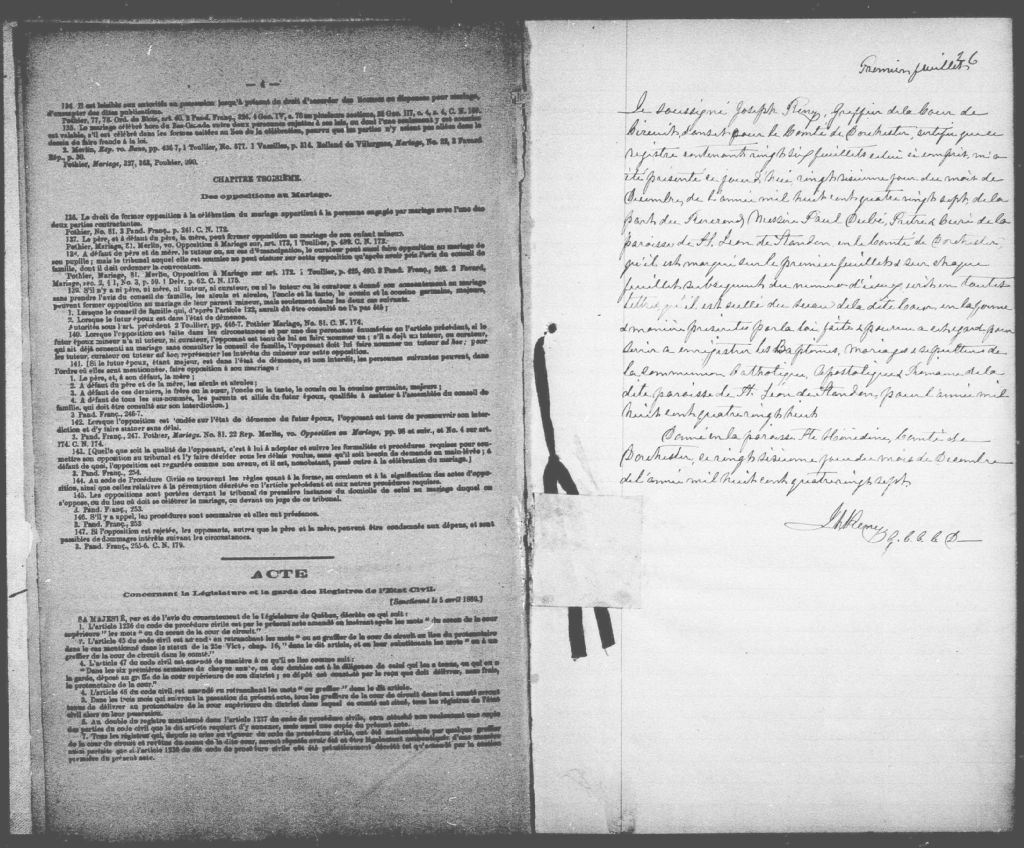 — 4 —
134. Il est loisible aux autorités en possession jusqu'à présent du droit d'accorder des licences ou dispenses pour mariage,
d'exempter des dites publications.
Pothier, 77, 78. Ord. de Blois, art. 40.
135. Le mariage célébré hors du Bas-Canada entre deux personnes sujettes à ses lois, ou dont l'une seulement y est soumise
est valable, s'il est célébré dans les formes usitées au lieu de la célébration, pourvu que les parties n'y soient pas allées dans le
dessein de faire fraude à la loi.
2. Merlin, Rep. vo. Bans, pp. 436-7, 1 Toullier, No. 577. 1 Vazeilles, p. 214. Rolland de Villargues, Mariage, No. 23, 2 Favard
Rép., p. 50.
Pothier, Mariage, 327, 363, Pothier, 290.
CHAPITRE TROISIÈME.
Des oppositions au Mariage.
136. Le droit de former opposition à la célébration du mariage appartient à la personne engagée par mariage avec l'une des
deux parties contractantes.
Pothier, No. 81. 3 Pand. Franç., p. 241. C. N. 172.
137. Le père, et à défaut du père, la mère, peut former opposition au mariage de son enfant mineur.
Pothier, Mariage, 81. Merlin, vo. Opposition à Mariage sur, art. 173, 1 Toullier, p. 489. C. N. 173.
138. A défaut de père et de mère, le tuteur ou, en cas d'émancipation, le curateur peut aussi faire opposition au mariage de
son pupille ; mais le tribunal auquel elle est soumise ne peut statuer sur cette opposition qu'après avoir pris l'avis du conseil de
famille, dont il doit ordonner la convocation.
Pothier, Mariage, 81. Merlin, Opposition à Mariage sur art. 172. 1 Toullier, p. 425, 490. 3 Pand. Franç., 248. 2 Favard,
Mariage, sec. 2, § 1, No. 3, p. 59. 1 Delv. p. 63. C. N. 175.
139. S'il n'y a ni père, ni mère, ni tuteur, ni curateur, ou si le tuteur ou le curateur a donné son consentement au mariage
sans prendre l'avis du conseil de famille, les aïeuls et aïeules, l'oncle et la tante, le cousin et la cousine germains, majeurs,
peuvent former opposition au mariage de leur parent mineur, mais seulement dans les deux cas suivants.
1. Lorsque le conseil de famille qui, d'après l'article 122, aurait dû être consulté ne l'a pas été ;
2. Lorsque le futur époux est dans l'état de démence.
Autorités sous l'art. précédent 2 Toullier, pp. 446-7. Pothier Mariage, No. 81. C. N. 174.
140. Lorsque l'opposition est faite dans les circonstances et par une des personnes énumérées en l'article précédent, si le
futur époux mineur n'a ni tuteur, ni curateur, l'opposant est tenu de lui en faire nommer un ; s'il a déjà un tuteur, ou curateur,
qui ait déjà consenti au mariage sans consulter le conseil de famille, l'opposant doit lui faire nommer un tuteur ad hoc ; pour
les tuteur, curateur ou tuteur ad hoc, représenter les intérêts du mineur sur cette opposition.
141. [Si le futur époux, étant majeur, est dans l'état de démence, et non interdit, les personnes suivantes peuvent, dans
l'ordre où elles sont mentionnées, faire opposition à son mariage :
1. Le père, et, à son défaut, la mère ;
2. A défaut du père et de la mère, les aïeuls et aïeules ;
3. A défaut de ces derniers, le frère ou la sœur, l'oncle ou la tante, le cousin ou la cousine germains, majeurs ;
4. A défaut de tous les sus-nommés, les parents et alliés du futur époux, qualifiés à assister à l'assemblée du conseil de
famille, qui doit être consulté sur son interdiction.]
3 Pand. Franç., 246-7.
142. Lorsque l'opposition est fondée sur l'état de démence du futur époux, l'opposant est tenu de promouvoir son inter-
diction et d'y faire statuer sans délai.
3. Pand. Franç., 247. Pothier, Mariage. No. 81. 22 Rep. Merlin, vo. Opposition au Mariage, pp. 98 et suiv., et No. 4 sur art.
174. C. N. 174.
143. [Quelle que soit la qualité de l'opposant, c'est à lui à adopter et suivre les formalités et procédures requises pour sou-
mettre son opposition au tribunal et l'y faire décider sous les délais voulus, sans qu'il soit besoin de demande en main-levée ; à
défaut de quoi, l'opposition est regardée comme non avenue, et il est, nonobstant, passé outre à la célébration du mariage.]
3. Pand. Franç., 254.
144. Au code de Procédure Civile se trouvent les règles quant à la forme, au contenu et à la signification des actes d'oppo-
sition, ainsi que celles relatives à la péremption décrétée en l'article précédent et aux autres procédures requises.
145. Les oppositions sont portées devant le tribunal de première instance du domicile de celui au mariage duquel on
s'oppose, ou du lieu où doit se célébrer le mariage, ou devant un juge de ce tribunal.
3. Pand. Franç., 253.
146. S'il y a appel, les procédures sont sommaires et elles ont préséance.
3. Pand. Franç., 253
147. Si l'opposition est rejetée, les opposants, autres que le père et la mère, peuvent être condamnés aux dépens, et sont
passibles de dommages intérêts suivant les circonstances.
3. Pand. Franç., 255-6. C. N. 179.
ACTE
Concernant la Législature et la garde des Registres de l'Etat Civil.
[Sanctionné le 5 avril 1869.]
SA MAJESTÉ, par et de l'avis du consentement de la Législature de Québec, décrète ce qui suit :
1. L'article 1236 du code de procédure civile est par le présent acte amendé en insérant après les mots "du sceau de la cour
supérieure" les mots "ou du sceau de la cour de circuit."
2. L'article 45 du code civil est amendé en retranchant les mots "ou au greffier de la cour de circuit au lieu du protonotaire,
dans le cas mentionné dans le statut de la 25e Vict., chap. 16," dans le dit article, et en leur substituant les mots "ou à un
greffier de la cour de circuit dans le comté."
4. L'article 47 du code civil est amendé de manière à ce qu'il se lise comme suit :
"Dans les six premières semaines de chaque année, un des doubles est à la diligence de celui qui les a tenus, ou qui en a
la garde, déposé au greffe de la cour supérieure de son district ; ce dépôt est constaté par le reçu que doit délivrer, sans frais,
le protonotaire de la cour."
4. L'article 48 du code civil est amendé en retranchant les mots "ou greffier" dans le dit article.
5. Dans les trois mois qui suivront la passation du présent acte, tous les greffiers de la cour de circuit dans tout comté seront
tenus de délivrer au protonotaire de la cour supérieure du district dans lequel ce comté est situé, tous les registres de l'état
civil alors en leur possession.
6. Au double du registre mentionné dans l'article 1237 du code de procédure civile, sera attaché non seulement une copie
des parties du code civil que le dit article requiert d'y annexer, mais aussi une copie du présent acte.
7. Tous les registres qui, depuis la mise en vigueur du code de procédure civile, ont été authentiqués par quelque greffier
de la cour de circuit et revêtus du sceau de la dite cour, seront réputés avoir été et être légalement authentiqués d'une manière
aussi parfaite que si l'article 1236 du dit code de procédure civile eût été primitivement décrété tel qu'amendé par la section
première du présent acte.
26
Premier feuillet
Je soussigné Joseph Remy, Greffier de la Cour de
Circuit, dans et pour le Comté de Dorchester, certifie que ce
registre contenant vingt six feuillets celui ci compris, m'a
été présenté ce jourd'hui vingt sixième jour du mois de
Décembre, de l'année mil huit cent quatre vingt sept de la
part du Révérend Messire Paul Dubé, Prêtre & Curé de la
paroisse de St. Léon de Standon en le Comté de Dorchester,
qu'il est marqué sur le premier feuillet & sur chaque
feuillet subséquent du numéro d'icieux écrit en toutes
lettres, qu'il est scellé du sceau de la dite Cour, en la forme
& manière prescrites par la loi, faite & pourvu à cet égard pour
servir à enregistrer les Baptêmes, Mariages & sépultures de
la Communion Catholique, Apostolique & Romaine de la
dite paroisse de St. Léon de Standon, pour l'année mil
huit cent quatre vingt huit
Donné en la paroisse Ste Hénédine, Comté de
Dorchester, ce vingt sixième jour du mois de Décembre
de l'année mil huit cent quatre vingt sept.
J. Remy
G. C. C. C. D—